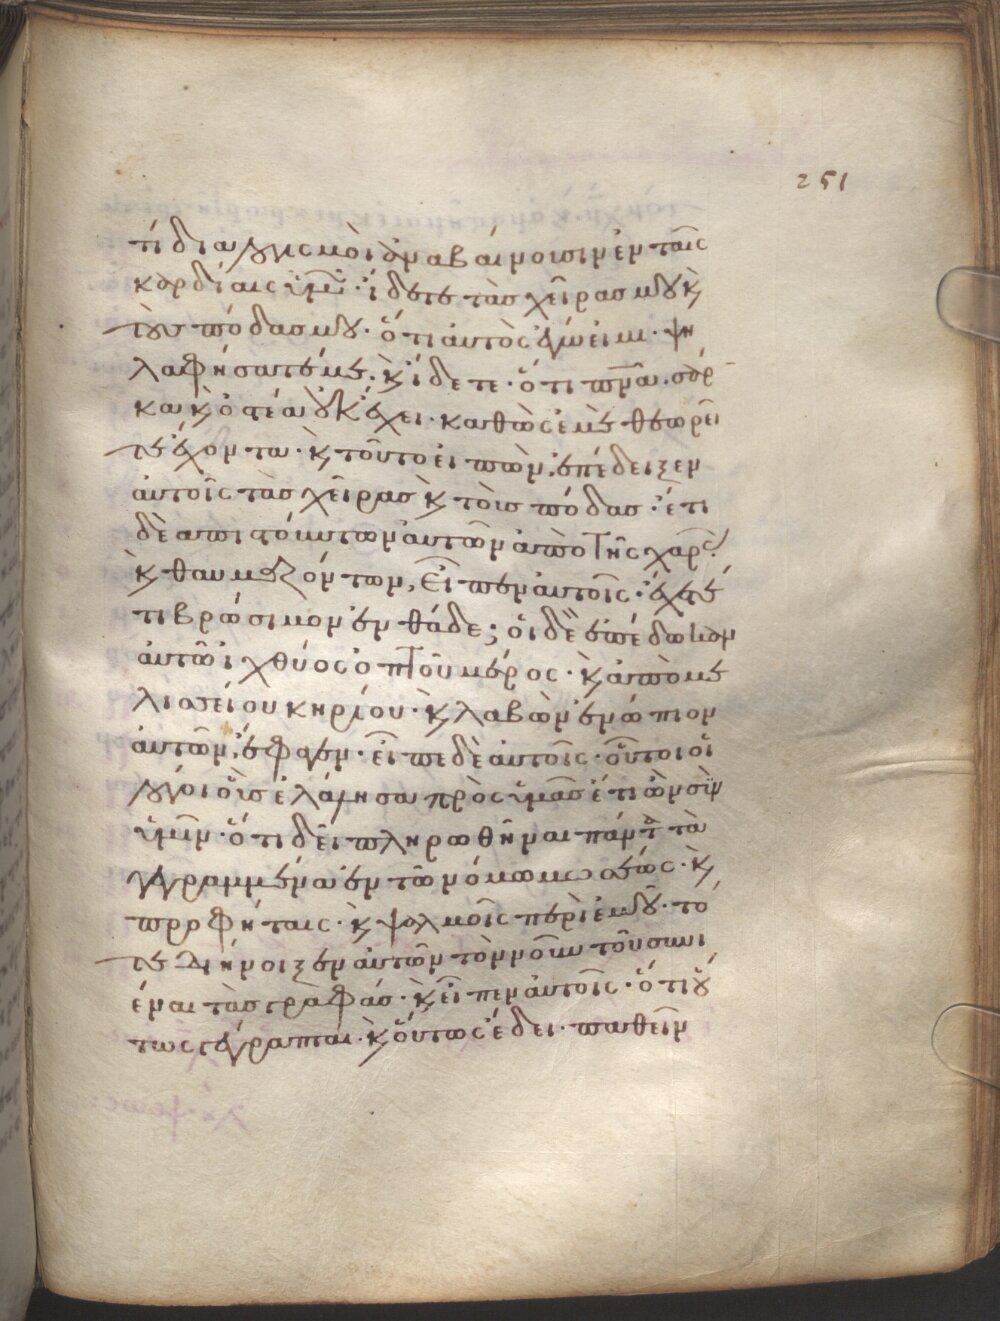 251
τί διαλογισμοὶ ἀναβαίνουσιν ἐν ταῖς
καρδίαις ὑμῶν· ἴδετε τὰς χεῖρας μου κ̀
τοὺς πόδας μου· ὅτι αὐτὸς ἐγώ εἰμι· ψη
λαφήσατέ με· κ̀ ἴδετε· ὅτι πνᾶ· σάρ
κα κ̀ ὀστέα οὐκ ἔχει· καθὼς ἐμὲ θεωρεῖ
τε ἔχοντα· κ̀ τοῦτο εἰπὼν, ἐπέδειξεν
αὐτοῖς τὰς χεῖρας κ̀ τοὺς πόδας· ἔτι
δὲ απιστούντων αὐτῶν ἀπὸ τῆς χαρᾶς·
κ̀ θαυμαζόντων, εἶπεν αὐτοῖς· ἔχετέ
τι βρώσιμον ἐνθάδε; οἱ δὲ ἐπέδωκαν
αὐτῶ ἰχθύος ὀπτοῦ μέρος· κ̀ ἀπὸ με
λισσείου κηρίου· κ̀ λαβὼν ἐνώπιον
αὐτῶν, ἔφαγεν· εἶπε δὲ αὐτοῖς· οὗτοι οἱ
λόγοι οὓς ἐλάλησα πρὸς ὑμᾶς ἔτι ὢν σὺν
ὑμῖν· ὅτι δεῖ πληρωθῆναι πάντα τὰ
γεγραμμένα ἐν τῶ νόμω μωσέως· κ̀
προφήταις· κ̀ ψαλμοῖς περὶ ἐμοῦ· τό
τε διήνοιξεν αὐτῶν τὸν νοῦν τοῦ συνι
έναι τὰς γραφάς· κ̀ εἶπεν αὐτοῖς· ὅτι οὕ
τως γέγραπται· κ̀ οὕτως ἔδει· παθεῖν